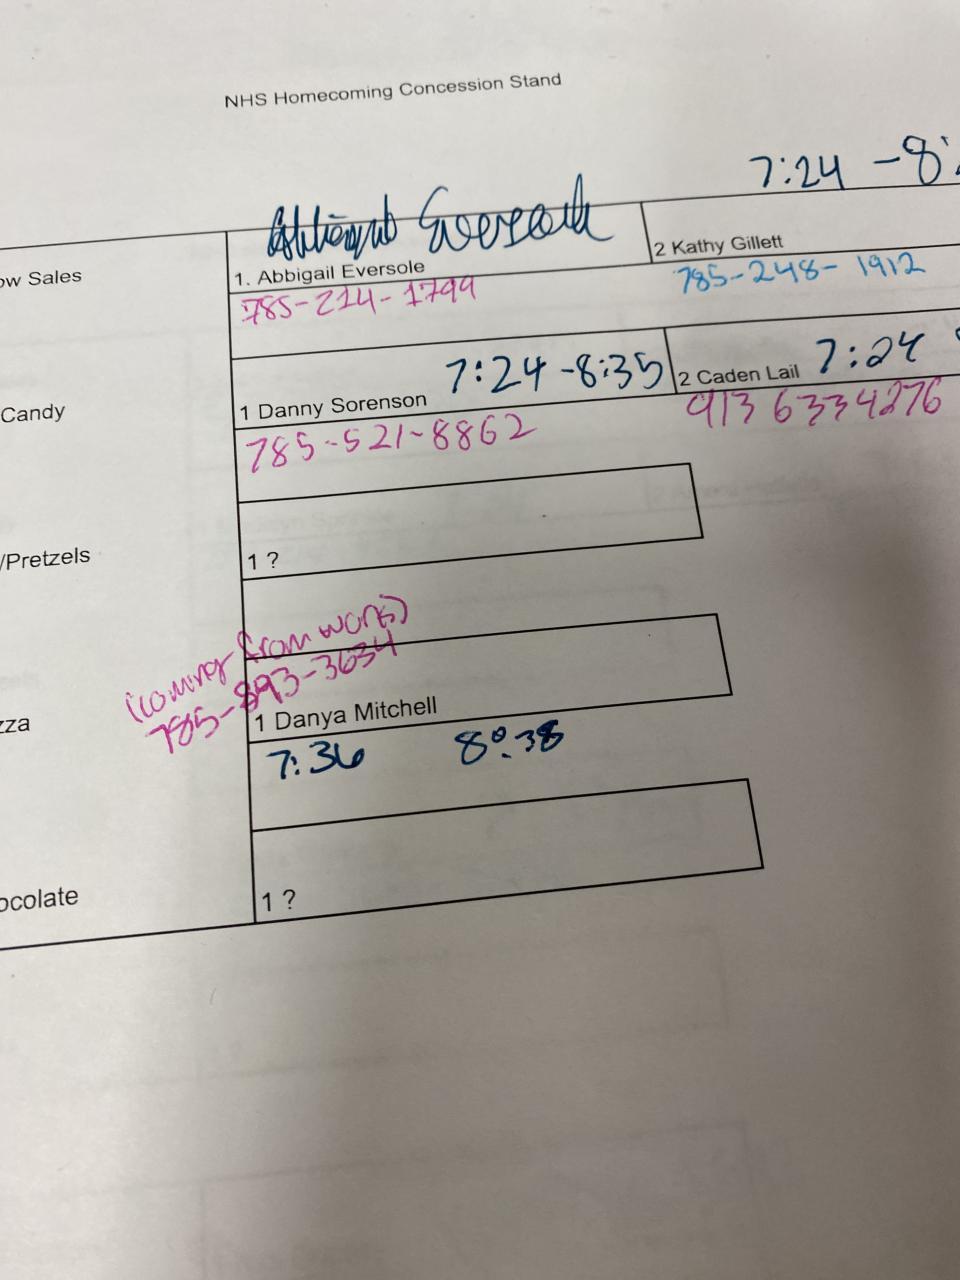 NHS Homecoming Concession Stand
7:24 - 8:
Eversole
ow Sales
1. Abbigail Eversole
2 Kathy Gillett
785-214-1799
785-248-1912
7:24 -8:35
7:24
Candy
1 Danny Sorenson
2 Caden Lail
785-521-8862
913 6334276
/Pretzels
1 ?
(coming from work)
785-893-3634
zza
1 Danya Mitchell
7:36 8:38
ocolate
1 ?